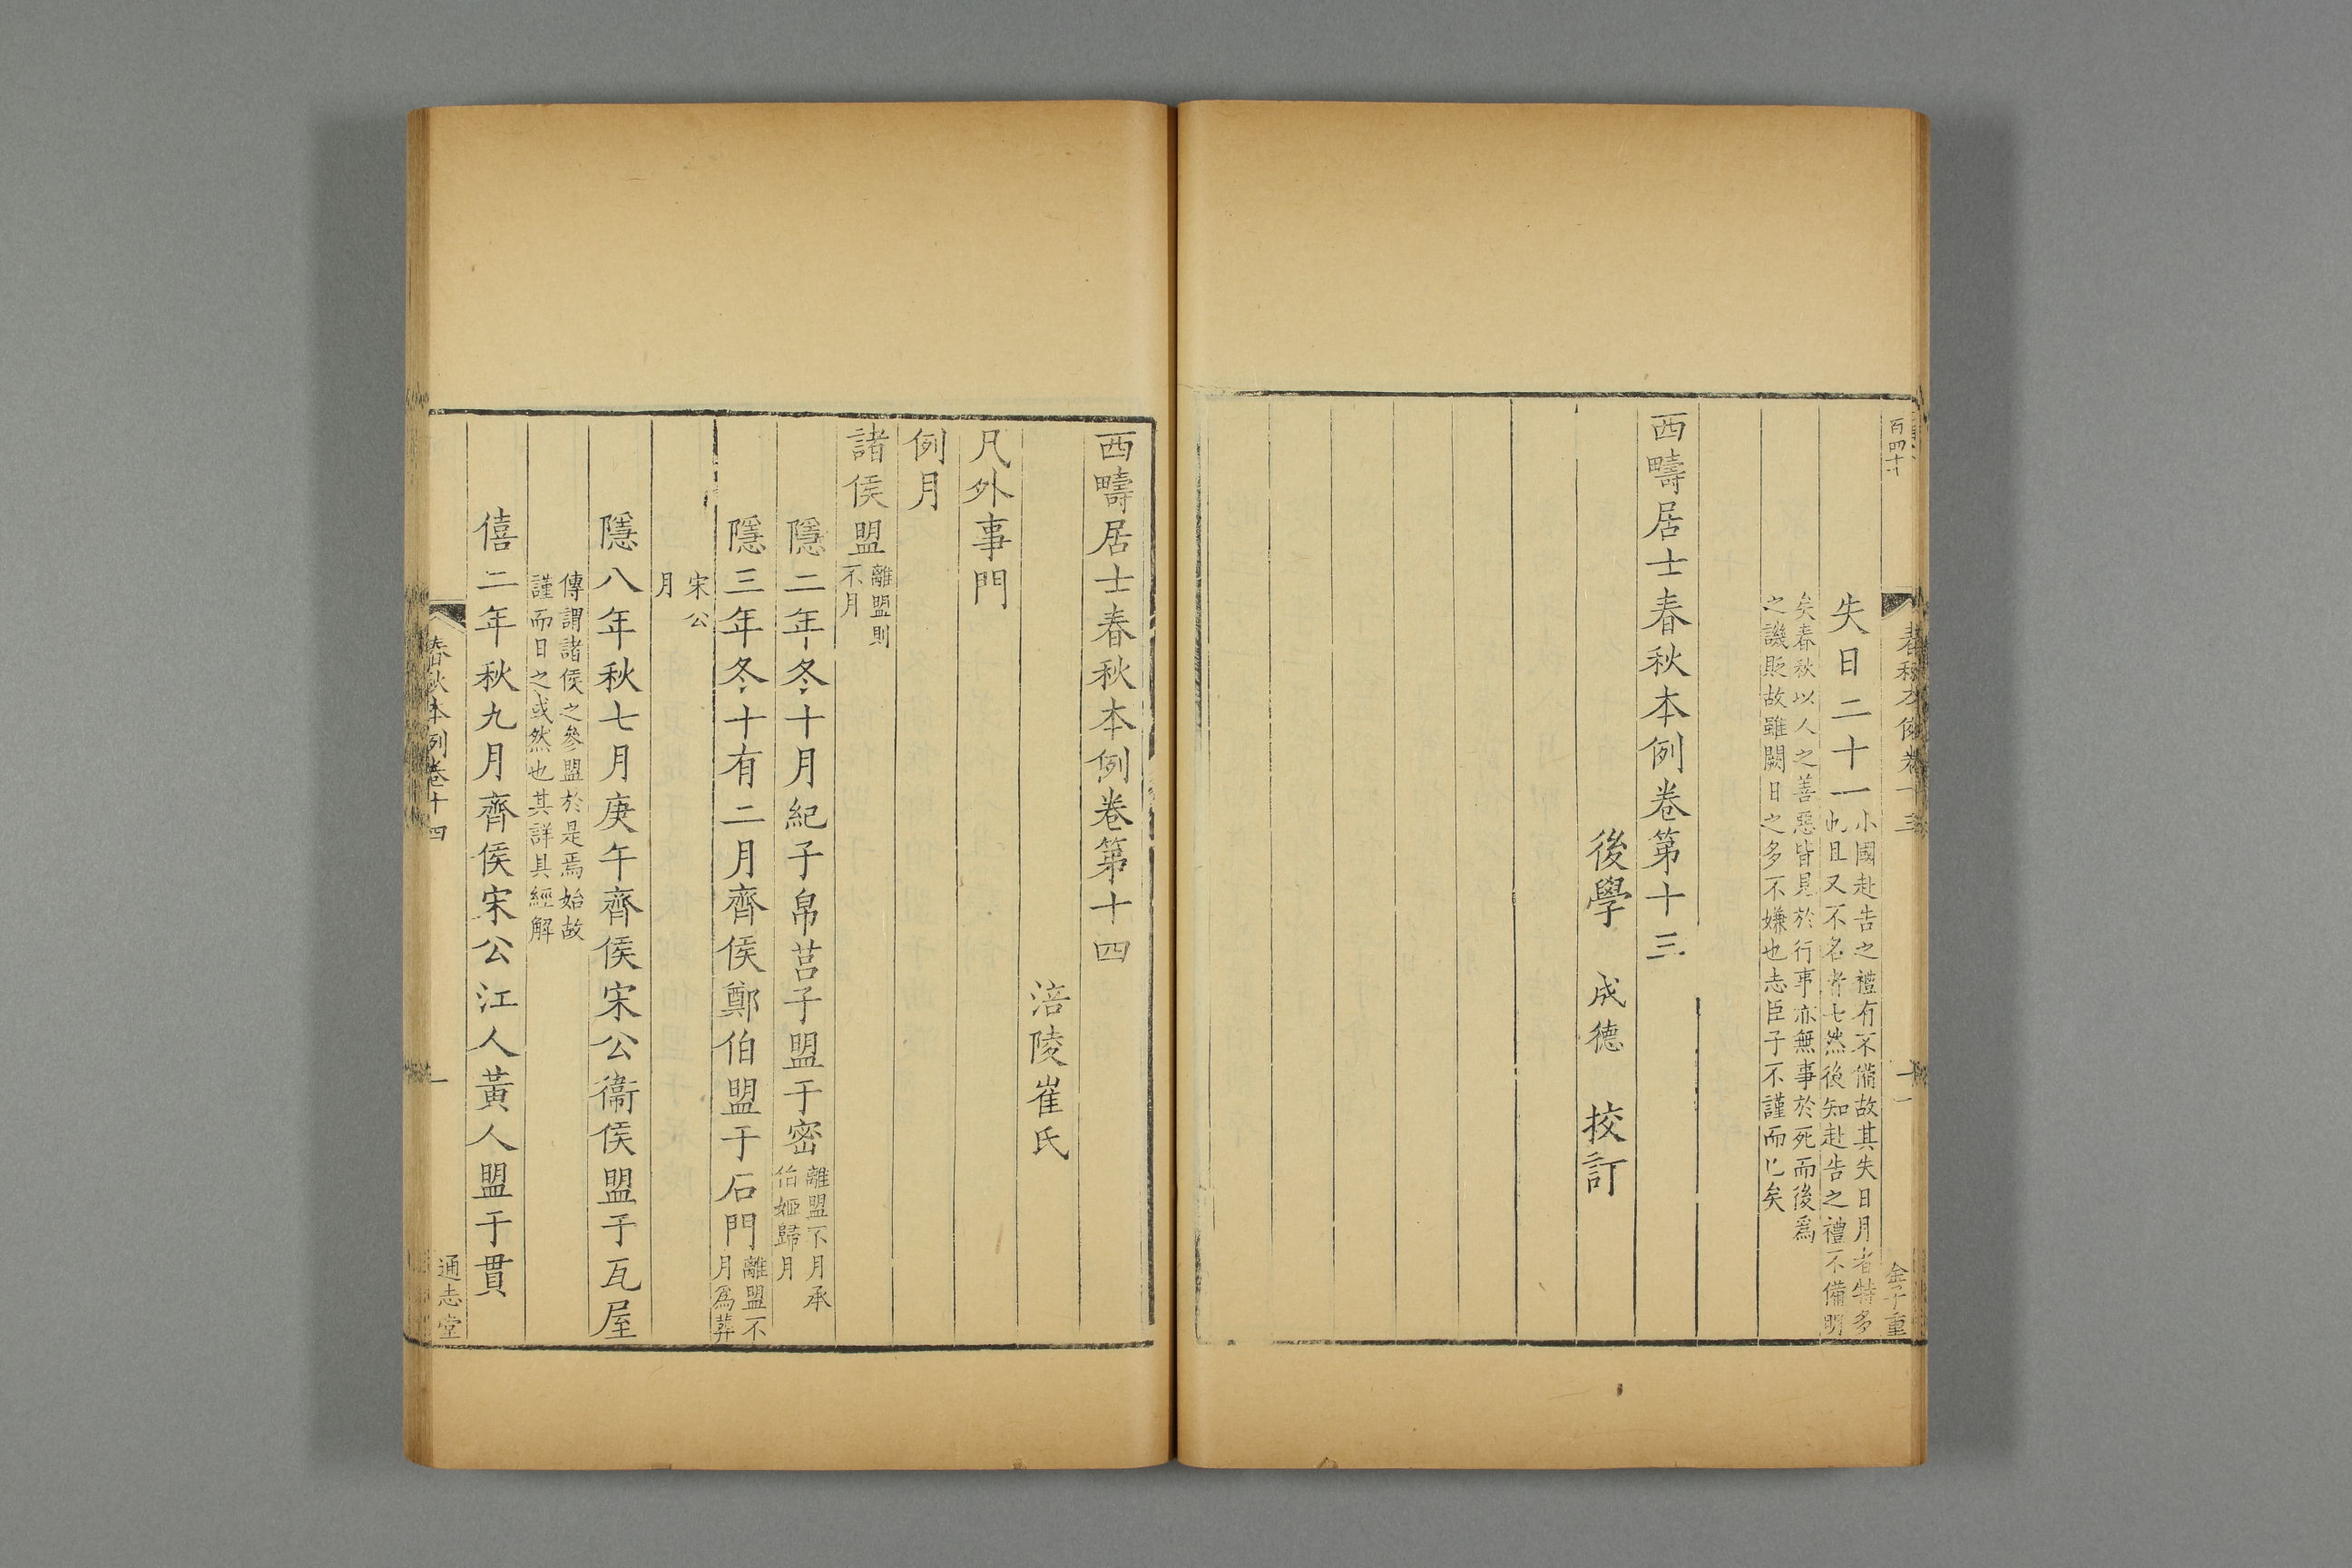 百四十
春秋本例卷十三
十一
金子重
失日二十一小國赴告之禮有不備故其失日月者特多
也且又不名者七然後知赴告之禮不備明
矣春秋以人之善惡皆見於行事亦無事於死而後爲
之譏貶故雖闕日之多不嫌也志臣子不謹而已矣
西疇居士春秋本例卷第十三
後學 成德 挍訂
西疇居士春秋本例卷第十四
涪陵崔氏
凡外事門
例月
諸侯盟離盟則
不月
隱二年冬十月紀子帛莒子盟于密離盟不月承
伯姬歸月
隱三年冬十有二月齊侯鄭伯盟于石門離盟不
月爲葬
宋公
月
隱八年秋七月庚午齊侯宋公衞侯盟于瓦屋
傳謂諸侯之參盟於是焉始故
謹而日之或然也其詳具經解
僖二年秋九月齊侯宋公江人黃人盟于貫
春秋本例卷十四
一
通志堂